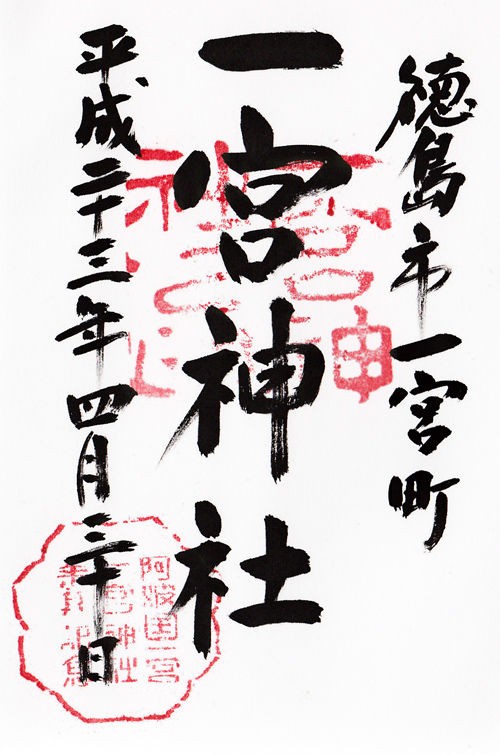 徳島市一宮町
一宮神社
平成二十三年四月三十日
阿波国一宮